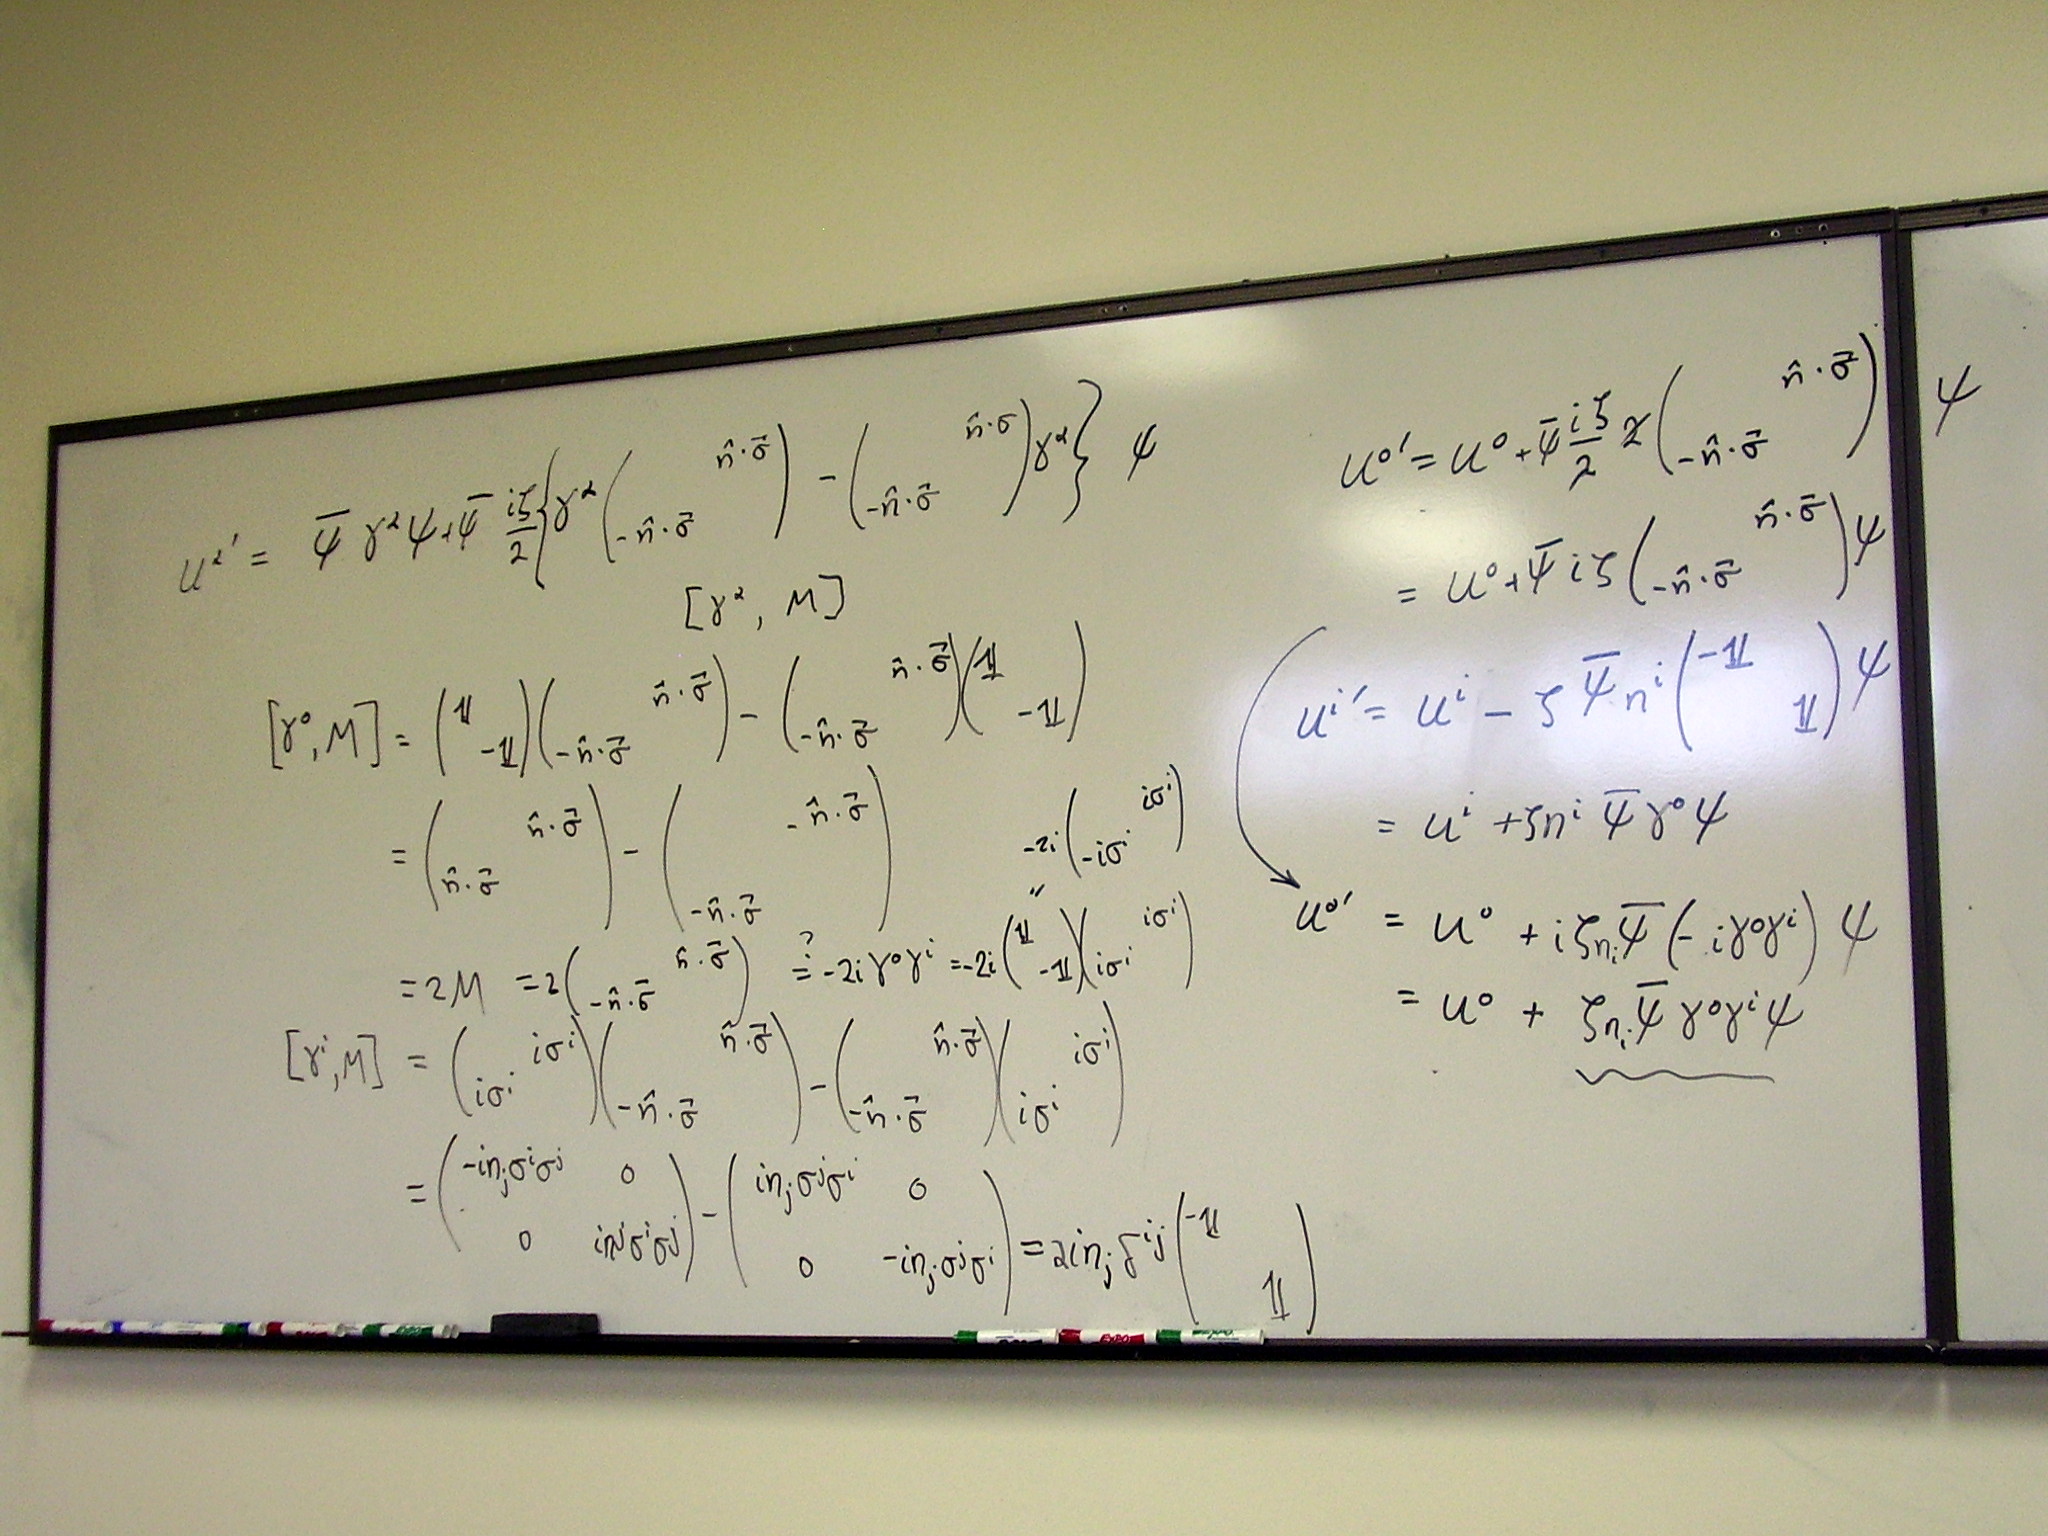 u^α' = ψ̄ γ^α ψ + ψ̄ iζ/2 { γ^α ( n̂·σ⃗ ; -n̂·σ⃗ ) - ( n̂·σ ; -n̂·σ⃗ ) γ^α } ψ
[γ^α, M]
[γ⁰, M] = ( 𝟙 ; -𝟙 )( n̂·σ⃗ ; -n̂·σ⃗ ) - ( n̂·σ⃗ ; -n̂·σ⃗ )( 𝟙 ; -𝟙 )
= ( n̂·σ⃗ ; n̂·σ⃗ ) - ( -n̂·σ⃗ ; -n̂·σ⃗ )
-2i ( iσ^i ; -iσ^i )
"
= 2M = 2( n̂·σ⃗ ; -n̂·σ⃗ ) =? -2i γ⁰γ^i = -2i ( 𝟙 ; -𝟙 )( iσ^i ; iσ^i )
[γ^i, M] = ( iσ^i ; iσ^i )( n̂·σ⃗ ; -n̂·σ⃗ ) - ( n̂·σ⃗ ; -n̂·σ⃗ )( iσ^i ; iσ^i )
= ( -in_jσ^iσ^j 0 ; 0 in^jσ^iσ^j ) - ( in_jσ^jσ^i 0 ; 0 -in_jσ^jσ^i ) = 2in_j δ^ij ( -𝟙 ; 𝟙 )
u⁰' = u⁰ + ψ̄ iζ/2 2 ( n̂·σ⃗ ; -n̂·σ⃗ ) ψ
= u⁰ + ψ̄ iζ ( n̂·σ⃗ ; -n̂·σ⃗ ) ψ
u^i' = u^i - ζ ψ̄ n^i ( -𝟙 ; 𝟙 ) ψ
= u^i + ζn^i ψ̄ γ⁰ ψ
u⁰' = u⁰ + iζn_i ψ̄ (-iγ⁰γ^i) ψ
= u⁰ + ζn_i ψ̄ γ⁰γ^i ψ
EXPO